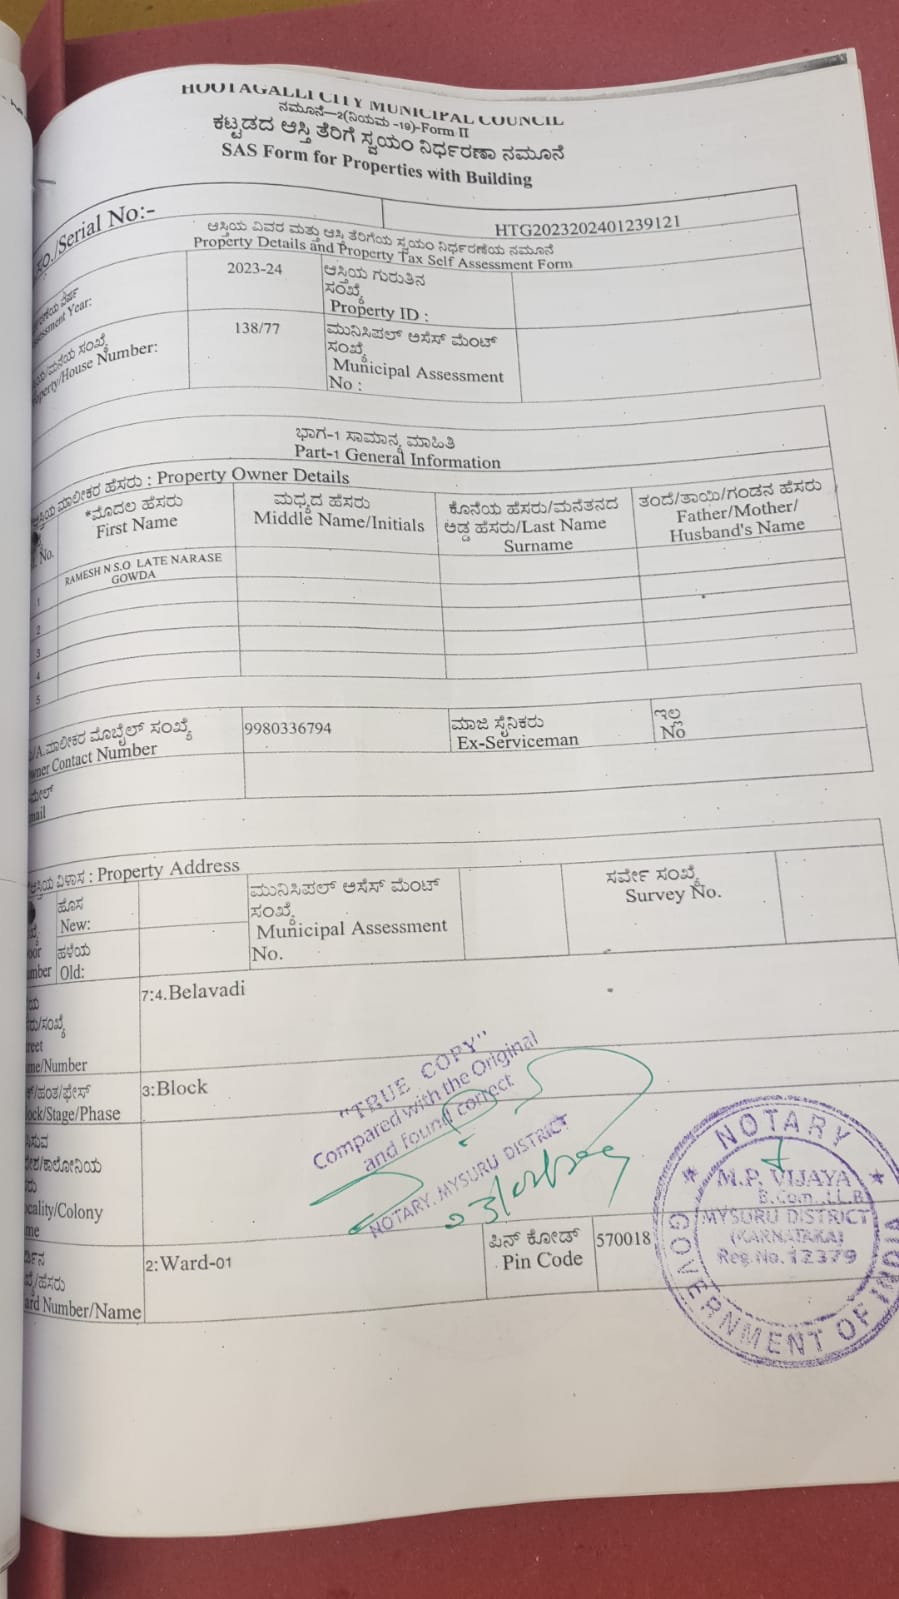 HOOTAGALLI CITY MUNICIPAL COUNCIL
ನಮೂನೆ-2(ನಿಯಮ -19)-Form II
ಕಟ್ಟಡದ ಆಸ್ತಿ ತೆರಿಗೆ ಸ್ವಯಂ ನಿರ್ಧರಣಾ ನಮೂನೆ
SAS Form for Properties with Building
/Serial No:-
HTG2023202401239121
ಆಸ್ತಿಯ ವಿವರ ಮತ್ತು ಆಸ್ತಿ ತೆರಿಗೆಯ ಸ್ವಯಂ ನಿರ್ಧರಣೆಯ ನಮೂನೆ
Property Details and Property Tax Self Assessment Form
Year:
2023-24
ಆಸ್ತಿಯ ಗುರುತಿನ
ಸಂಖ್ಯೆ
Property ID :
ಸಂಖ್ಯೆ
/House Number:
138/77
ಮುನಿಸಿಪಲ್ ಅಸೆಸ್ ಮೆಂಟ್
ಸಂಖ್ಯೆ
Municipal Assessment
No :
ಭಾಗ-1 ಸಾಮಾನ್ಯ ಮಾಹಿತಿ
Part-1 General Information
ಮಾಲೀಕರ ಹೆಸರು : Property Owner Details
No.
*ಮೊದಲ ಹೆಸರು
First Name
ಮಧ್ಯದ ಹೆಸರು
Middle Name/Initials
ಕೊನೆಯ ಹೆಸರು/ಮನೆತನದ
ಅಡ್ಡ ಹೆಸರು/Last Name
Surname
ತಂದೆ/ತಾಯಿ/ಗಂಡನ ಹೆಸರು
Father/Mother/
Husband's Name
1
RAMESH N S.O LATE NARASE
GOWDA
2
3
4
5
/A.ಮಾಲೀಕರ ಮೊಬೈಲ್ ಸಂಖ್ಯೆ
wner Contact Number
9980336794
ಮಾಜಿ ಸೈನಿಕರು
Ex-Serviceman
ಇಲ್ಲ
No
ಮೇಲ್
mail
ಆಸ್ತಿಯ ವಿಳಾಸ : Property Address
ಹೊಸ
New:
ಹಳೆಯ
Old:
ಮುನಿಸಿಪಲ್ ಅಸೆಸ್ ಮೆಂಟ್
ಸಂಖ್ಯೆ
Municipal Assessment
No.
ಸರ್ವೇ ಸಂಖ್ಯೆ
Survey No.
/ಸಂಖ್ಯೆ
reet
me/Number
7:4.Belavadi
/ಹಂತ/ಫೇಸ್
ock/Stage/Phase
3:Block
/ಕಾಲೋನಿಯ
cality/Colony
me
/ಹೆಸರು
ard Number/Name
2:Ward-01
ಪಿನ್ ಕೋಡ್
Pin Code
570018
"TRUE COPY"
Compared with the Original
and found correct
NOTARY. MYSURU DISTRICT
NOTARY
M.P. VIJAYA
B.Com.,LL.B
MYSURU DISTRICT
(KARNATAKA)
Reg.No.12379
GOVERNMENT OF INDIA